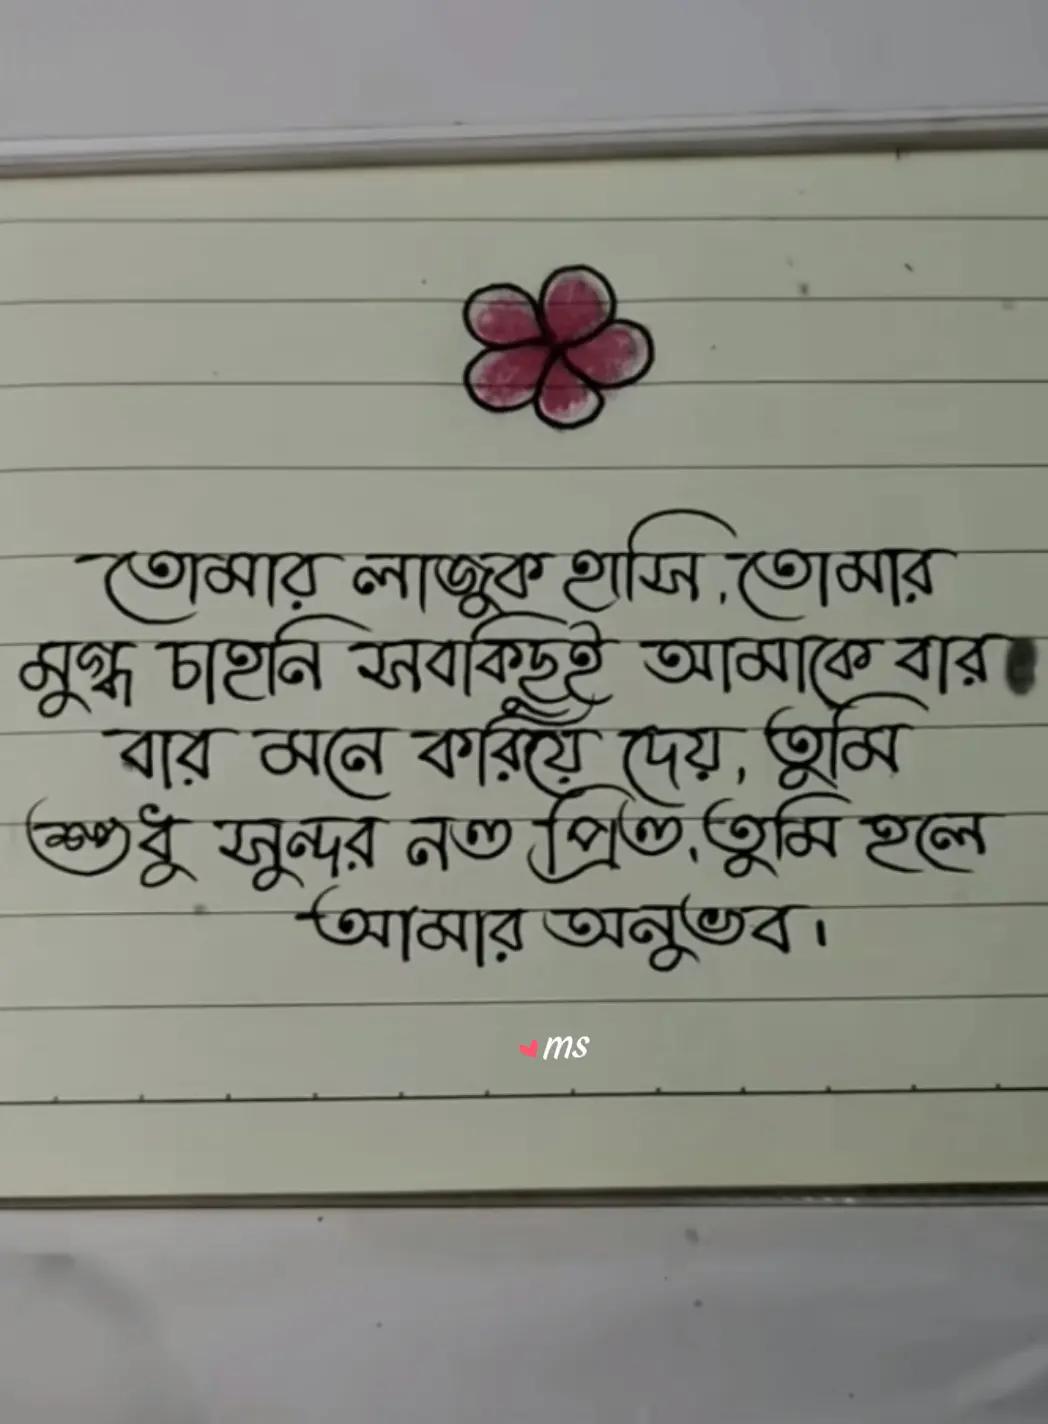 তোমার লাজুক হাসি, তোমার
মুগ্ধ চাহনি সবকিছুই আমাকে বার
বার মনে করিয়ে দেয়, তুমি
শুধু সুন্দর নও প্রিও, তুমি হলে
আমার অনুভব।
ms